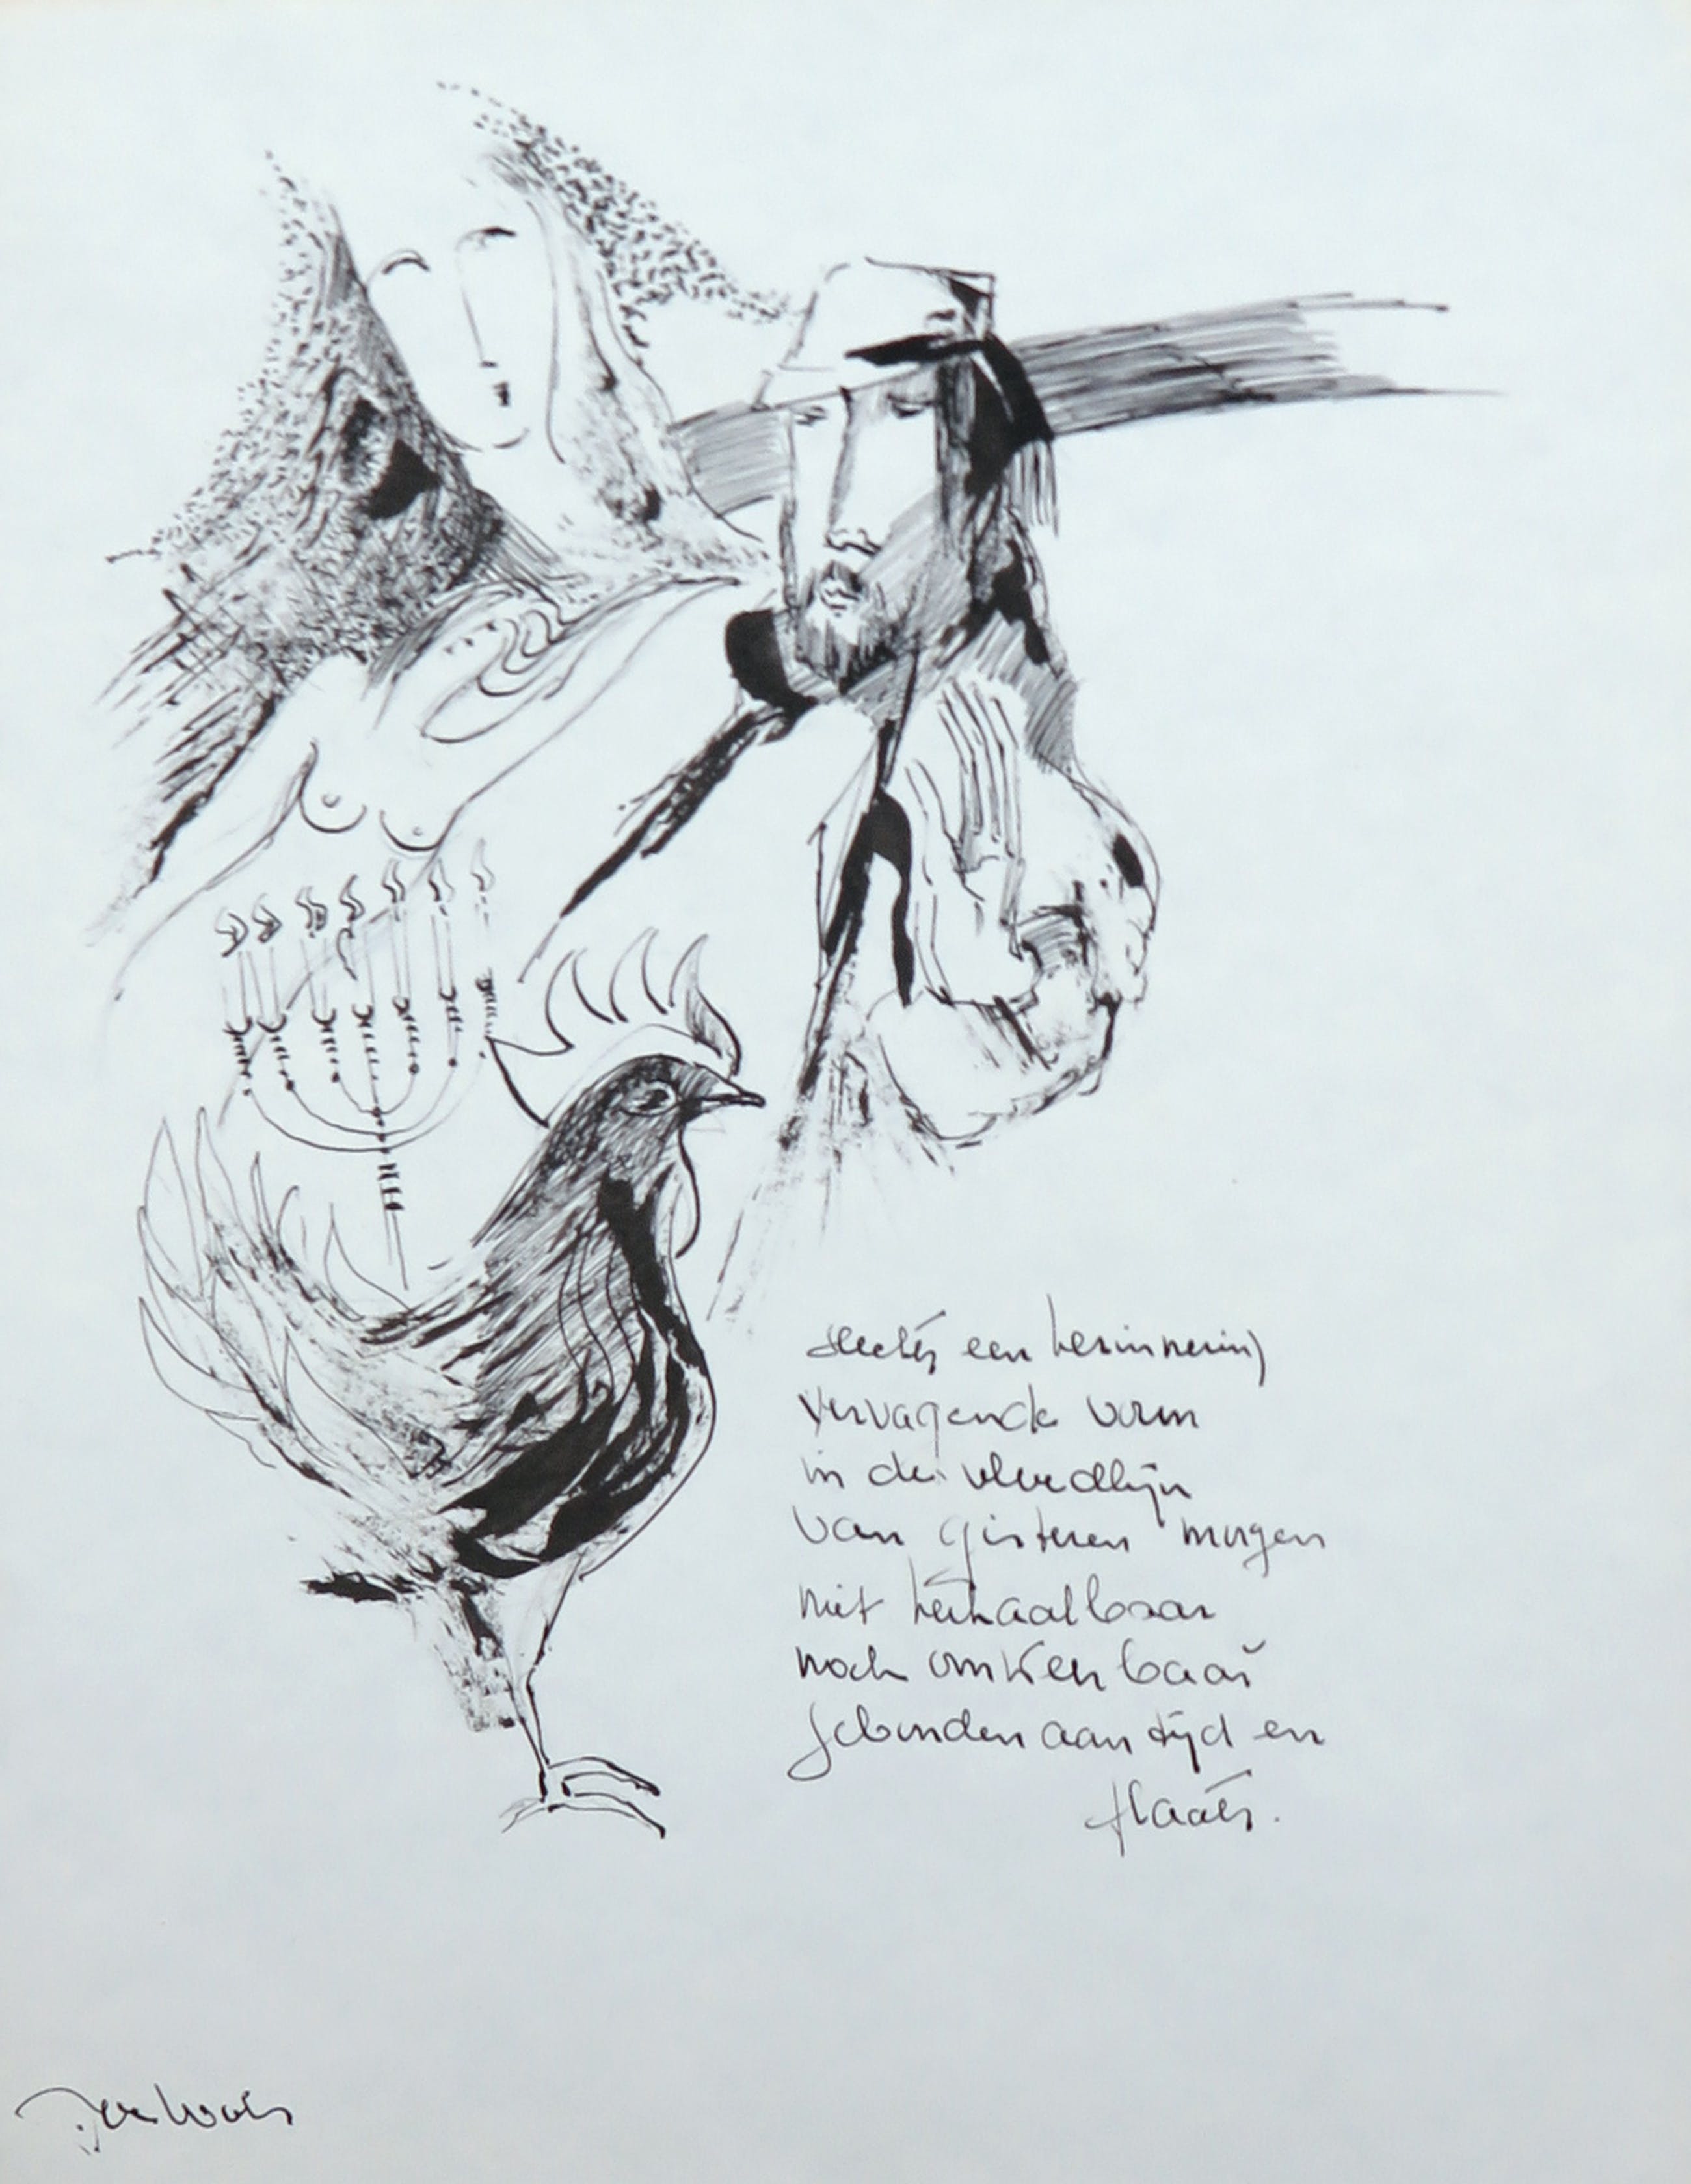 slechts een herinnering
vervagende vorm
in de vloedlijn
van gisteren morgen
niet herhaalbaar
noch omkeerbaar
gebonden aan tijd en
plaats.